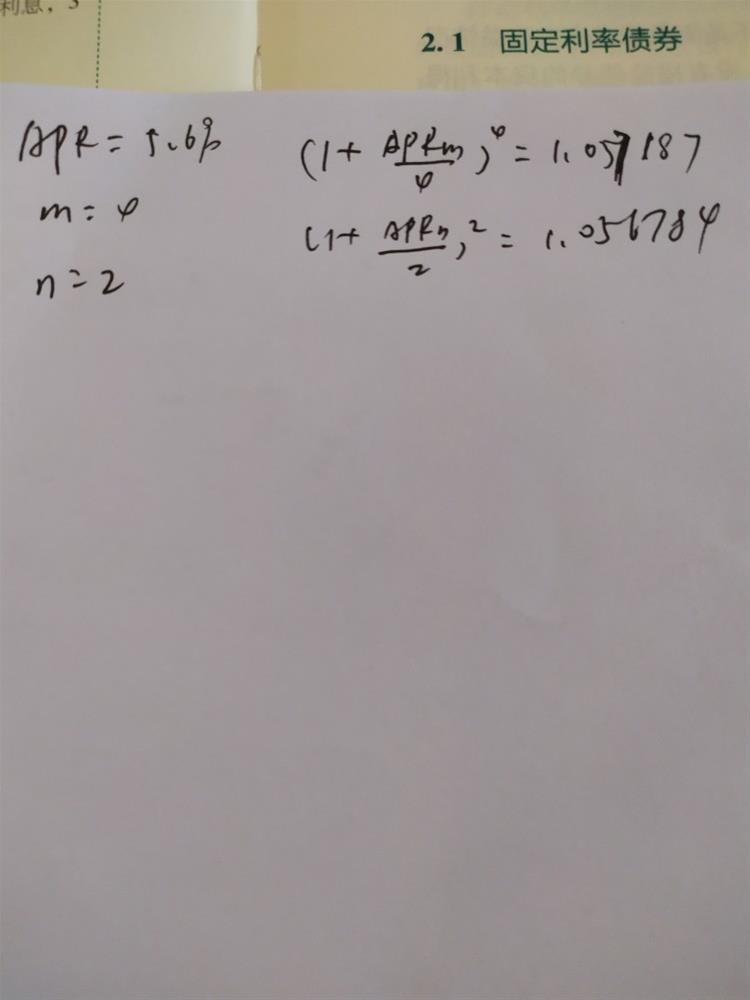 利息，3
2.1 固定利率债券
APR = 5.6%
m = 4
n = 2
(1 + APRm/4)^4 = 1.057187
(1 + APRn/2)^2 = 1.056784